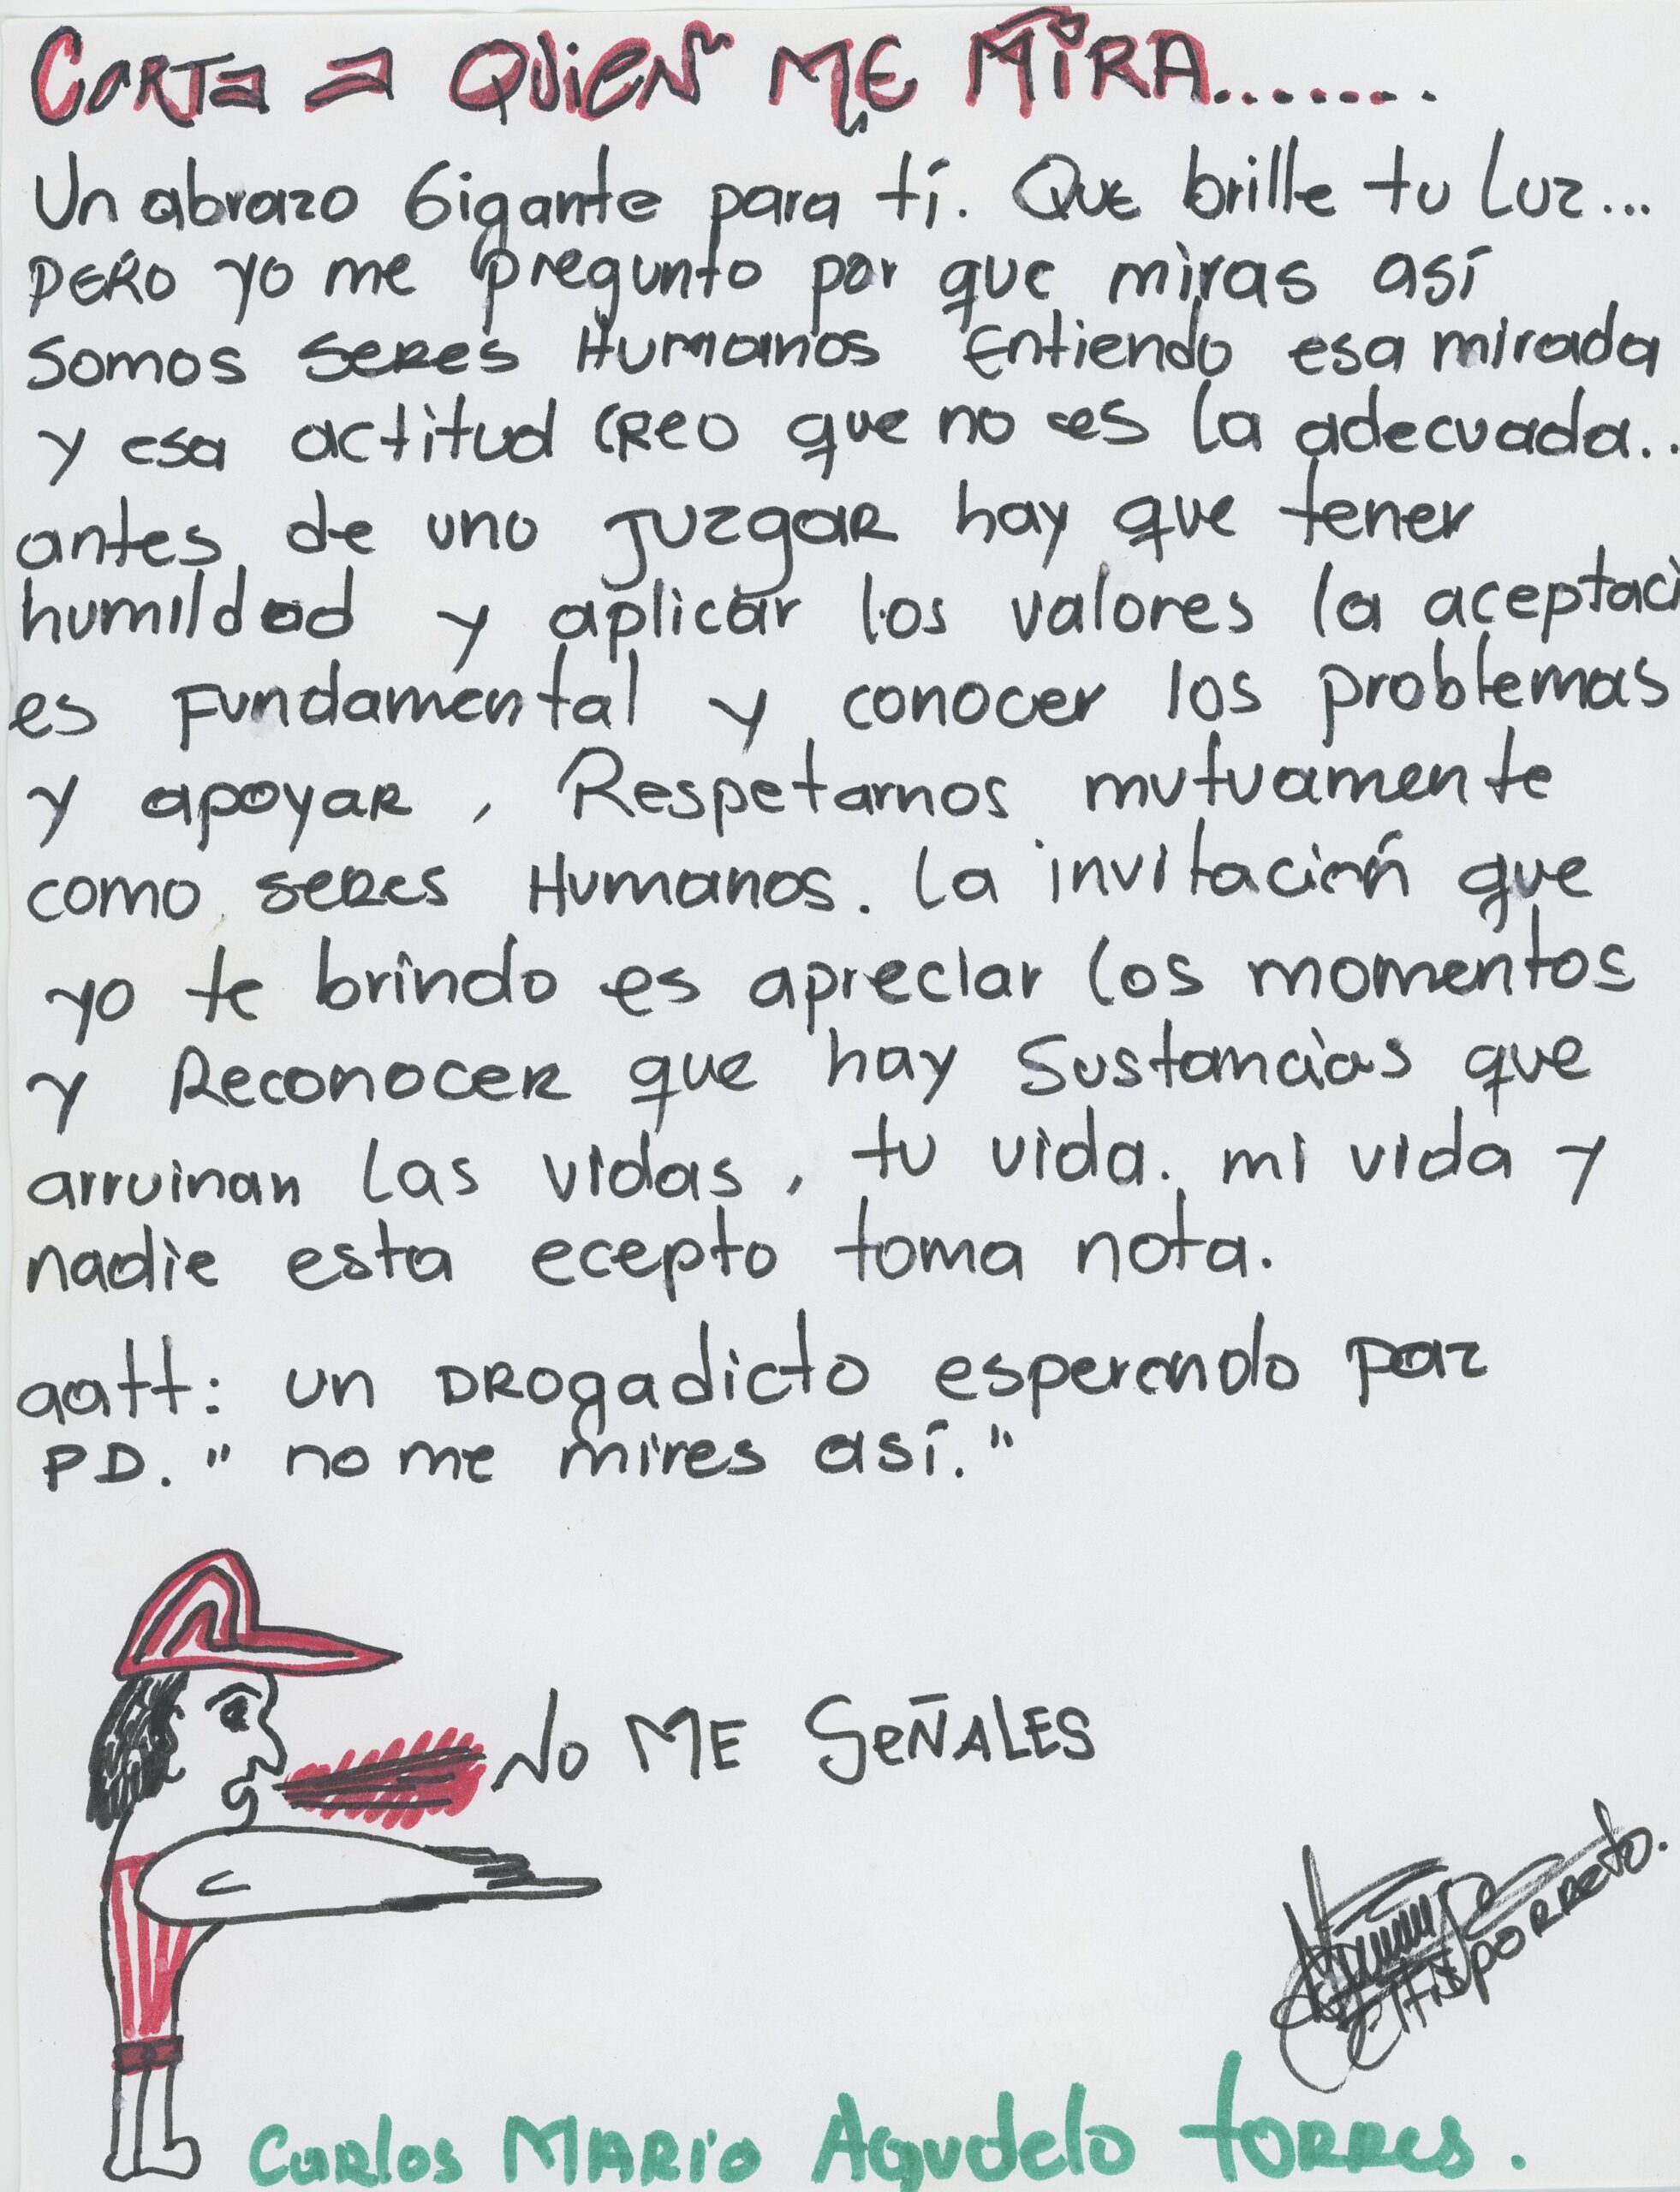 CARTA a QUieN ME MiRA.......
Un abrazo Gigante para tí. Que brille tu Luz...
PERO yo me pregunto por que miras así
Somos seres Humanos Entiendo esa mirada
y esa actitud CREO que no es la adecuada..
antes de uno JUZgaR hay que tener
humildad y aplicar los valores la aceptaci
es Fundamental y conocer los problemas
y apoyaR, Respetarnos mutuamente
como seres Humanos. La invitación que
yo te brindo es apreciar los momentos
y Reconocer que hay Sustancias que
arruinan las vidas, tu vida. mi vida y
nadie esta ecepto toma nota.
aatt: un DROgadicto esperando paz
PD. "no me mires así."
No ME SeÑALES
Carlos MARio Agudelo torres.